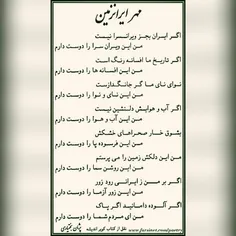 مهر ایرانزمین
اگر ایران بجز ویرانسرا نیست
من این ویران سرا را دوست دارم
اگر تاریخ ما افسانه رنگ است
من این افسانه ها را دوست دارم
نوای نای ما گر جانگدازست
من این نای و نوا را دوست دارم
اگر آب و هوایش دلنشین نیست
من این آب و هوا را دوست دارم
بشوق خار صحراهای خشکش
من این فرسوده پا را دوست دارم
من این دلکش زمین را می پرستم
من این روشن سما را دوست دارم
اگر بر من ز ایرانی رود زور
من این زور آزما را دوست دارم
اگر آلوده دامانید اگر پاک
من ای مردم شما را دوست دارم
نقل از کتاب کویر اندیشه